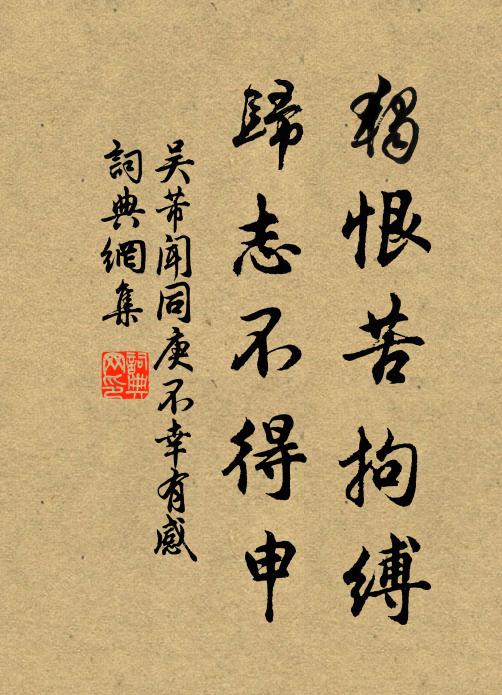 獨恨苦拘縛
歸志不得申
吳芾聞同庚不幸有感
詞典網集
詞典
网印